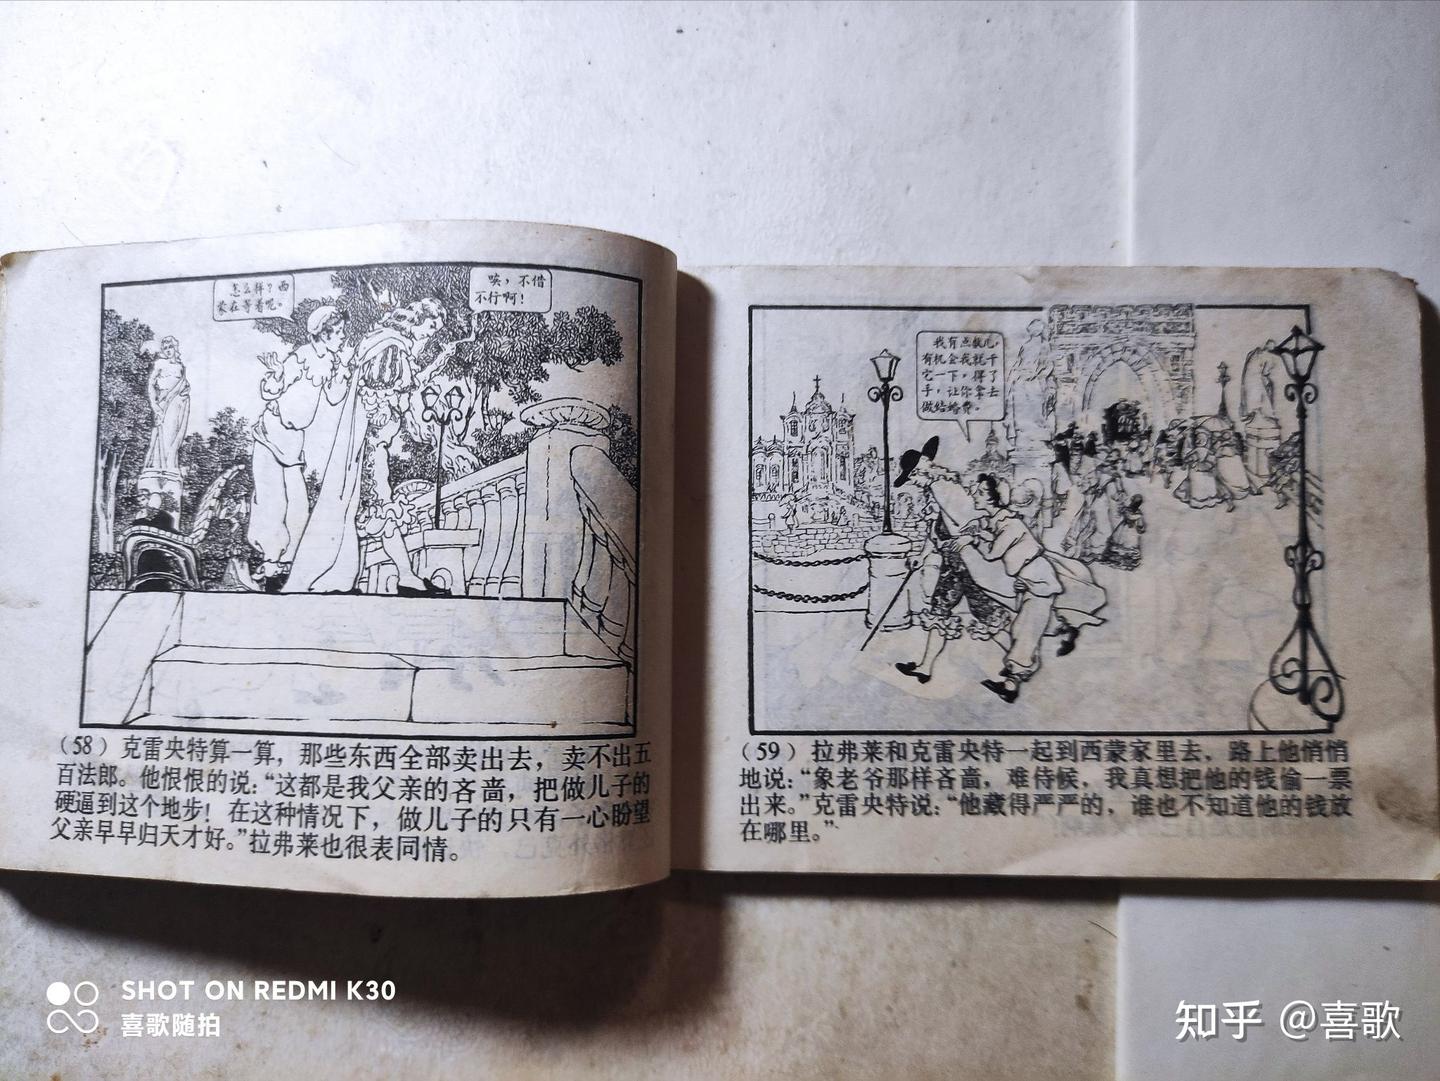 怎么样？西
蒙在等着呢。
唉，不借
不行啊！
（58）克雷央特算一算，那些东西全部卖出去，卖不出五
百法郎。他恨恨的说：“这都是我父亲的吝啬，把做儿子的
硬逼到这个地步！在这种情况下，做儿子的只有一心盼望
父亲早早归天才好。”拉弗莱也很表同情。
我有点机儿，
有机会我就干
它一下，得了
手，让你拿去
做结婚费。
（59）拉弗莱和克雷央特一起到西蒙家里去，路上他悄悄
地说：“象老爷那样吝啬，难侍候，我真想把他的钱偷一票
出来。”克雷央特说：“他藏得严严的，谁也不知道他的钱放
在哪里。”
SHOT ON REDMI K30
喜歌随拍
知乎 @喜歌